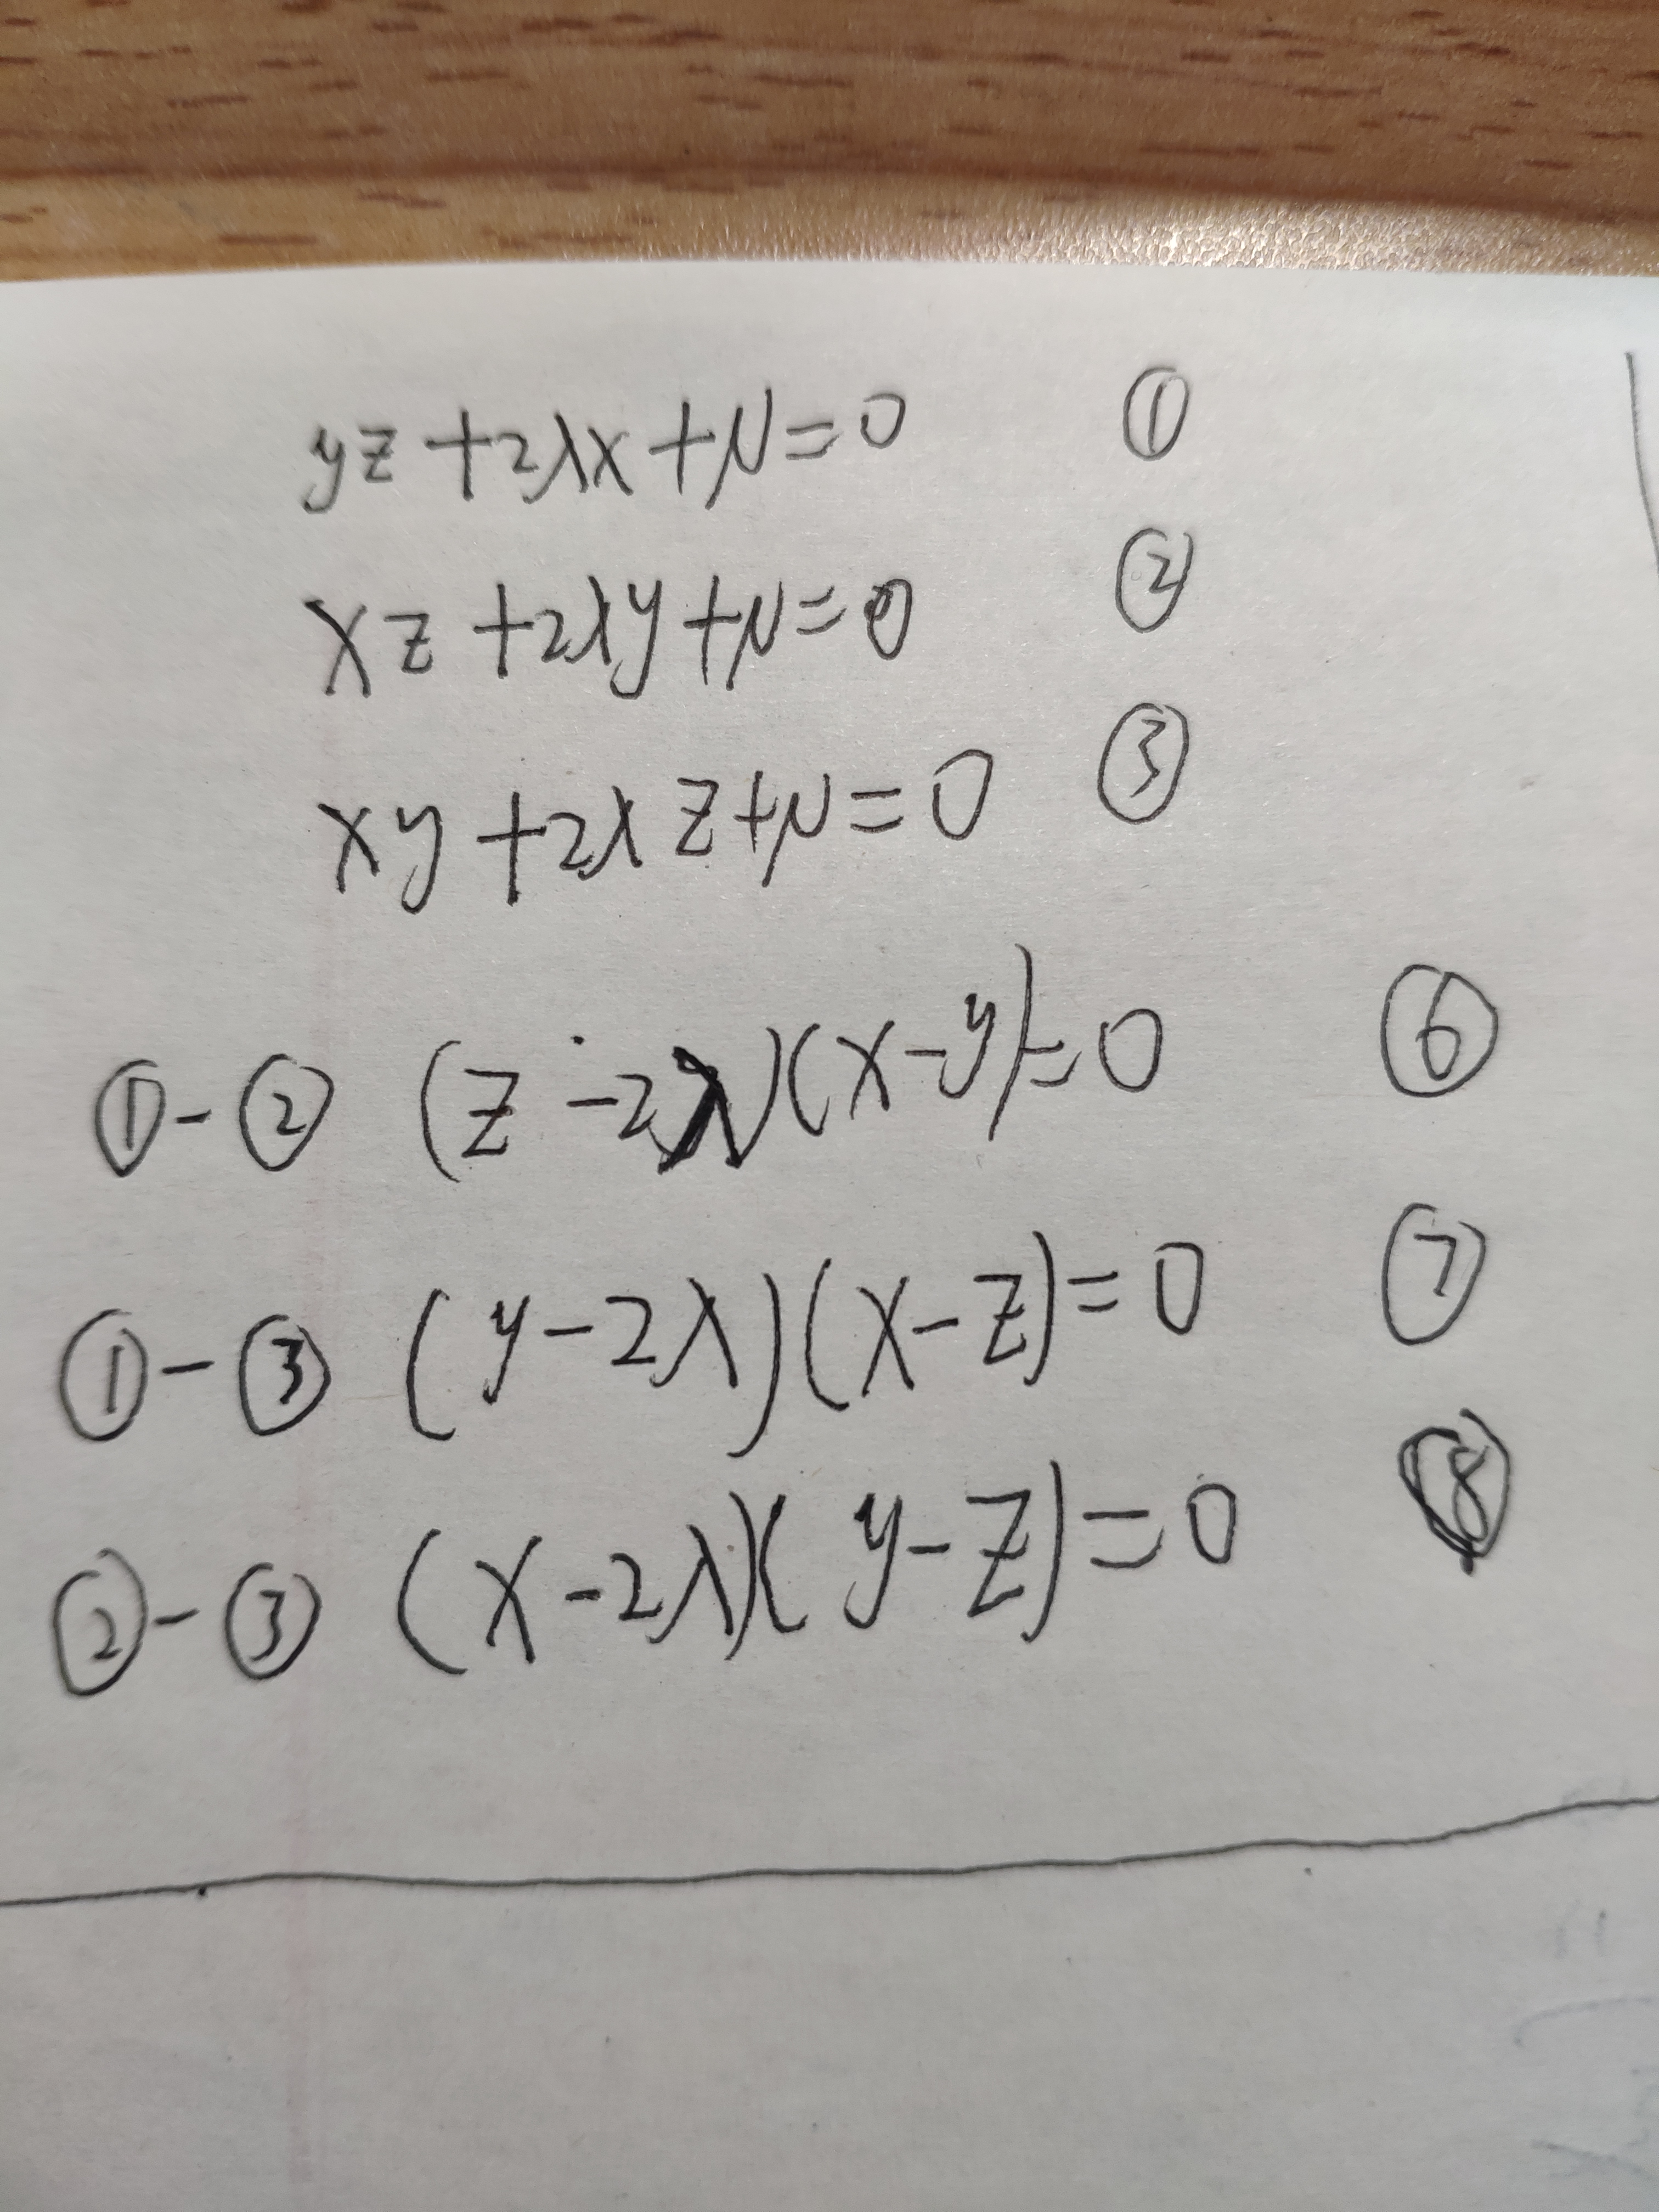 yz+2λx+μ=0 ①
xz+2λy+μ=0 ②
xy+2λz+μ=0 ③
①-② (z-2λ)(x-y)=0 ⑥
①-③ (y-2λ)(x-z)=0 ⑦
②-③ (x-2λ)(y-z)=0 ⑧